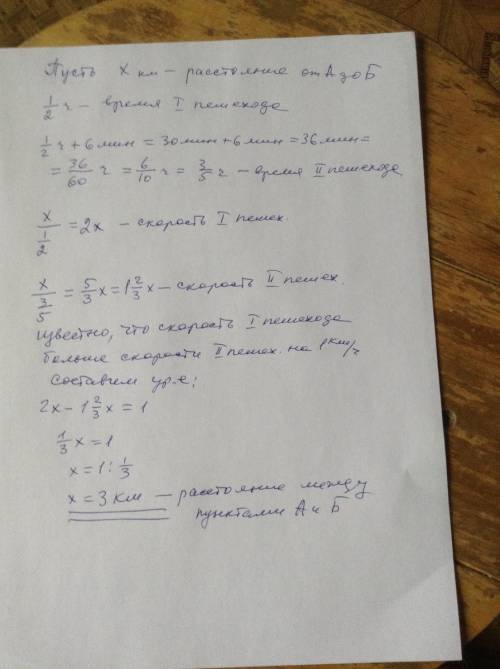 Пусть x км – расстояние от А до Б
1/2 ч – время I пешехода
1/2 ч + 6 мин = 30 мин + 6 мин = 36 мин =
= 36/60 ч = 6/10 ч = 3/5 ч – время II пешехода
x/(1/2) = 2x – скорость I пешех.
x/(3/5) = 5/3 x = 1 2/3 x – скорость II пешех.
известно, что скорость I пешехода
больше скорости II пешех. на 1 км/ч
составим ур-е;
2x – 1 2/3 x = 1
1/3 x = 1
x = 1 : 1/3
x = 3 км – расстояние между
пунктами А и Б